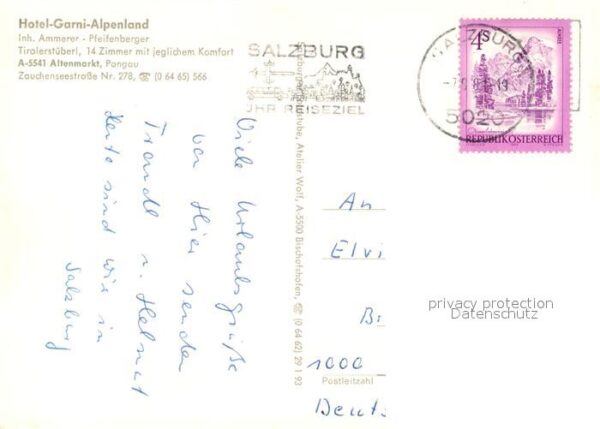 Hotel-Garni-Alpenland
Inh. Ammerer - Pfeifenberger
Tirolerstüberl, 14 Zimmer mit jeglichem Komfort
A-5541 Altenmarkt, Pongau
Zauchenseestraße Nr. 278, ☎ (0 64 65) 566
SALZBURG
IHR REISEZIEL
SALZBURG
5020
4S
REPUBLIK ÖSTERREICH
Viele Urlaubsgrüße
von Hier senden
Traudl u. Helmut
Heute sind wir in
Salzburg
Atelier Wolf, A-5500 Bischofshofen, ☎ (0 64 62) 29 1 93
An
Elvi
B
1000
Postleitzahl
Deut
privacy protection
Datenschutz